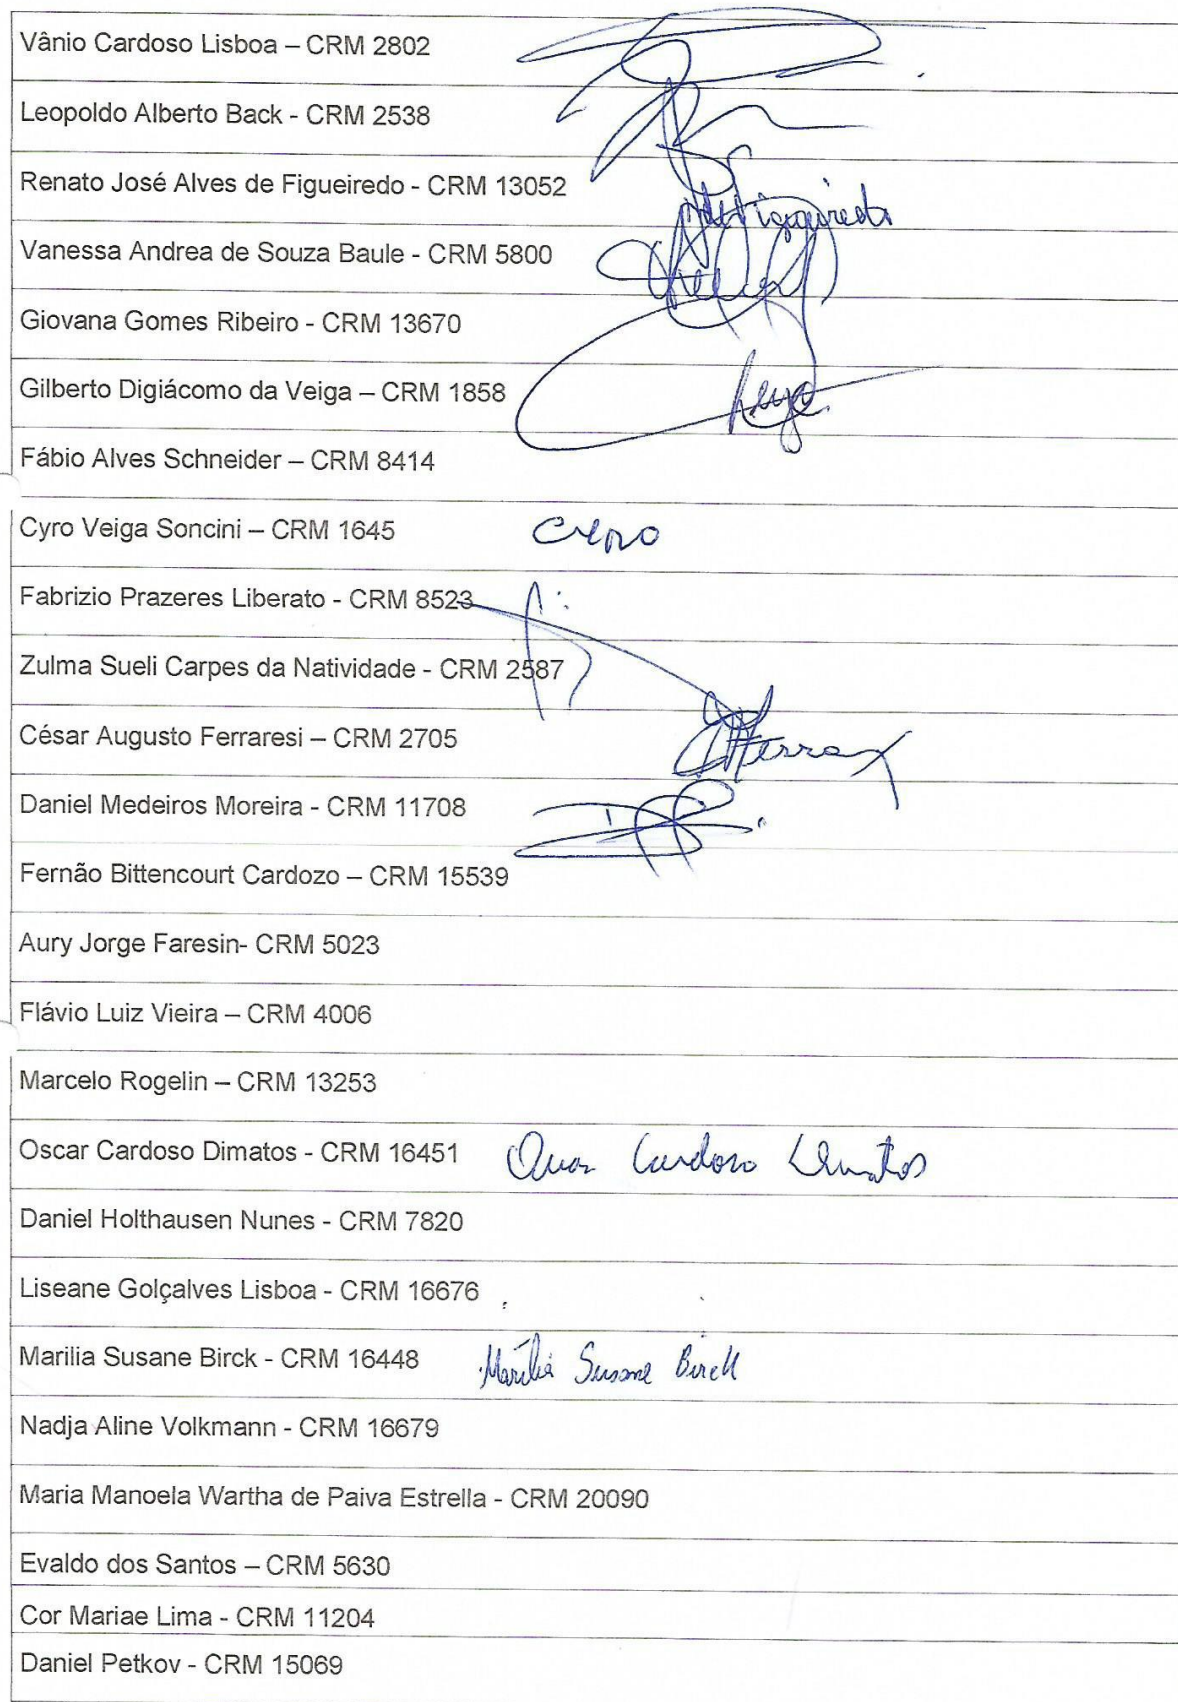 Vânio Cardoso Lisboa – CRM 2802
Leopoldo Alberto Back - CRM 2538
Renato José Alves de Figueiredo - CRM 13052
Figueiredo
Vanessa Andrea de Souza Baule - CRM 5800
Giovana Gomes Ribeiro - CRM 13670
Gilberto Digiácomo da Veiga – CRM 1858
Fábio Alves Schneider – CRM 8414
Cyro Veiga Soncini – CRM 1645 Cyro
Fabrizio Prazeres Liberato - CRM 8523
Zulma Sueli Carpes da Natividade - CRM 2587
César Augusto Ferraresi – CRM 2705
Daniel Medeiros Moreira - CRM 11708
Fernão Bittencourt Cardozo – CRM 15539
Aury Jorge Faresin- CRM 5023
Flávio Luiz Vieira – CRM 4006
Marcelo Rogelin – CRM 13253
Oscar Cardoso Dimatos - CRM 16451 Oscar Cardoso Dimatos
Daniel Holthausen Nunes - CRM 7820
Liseane Golçalves Lisboa - CRM 16676
Marilia Susane Birck - CRM 16448 Marilia Susane Birck
Nadja Aline Volkmann - CRM 16679
Maria Manoela Wartha de Paiva Estrella - CRM 20090
Evaldo dos Santos – CRM 5630
Cor Mariae Lima - CRM 11204
Daniel Petkov - CRM 15069